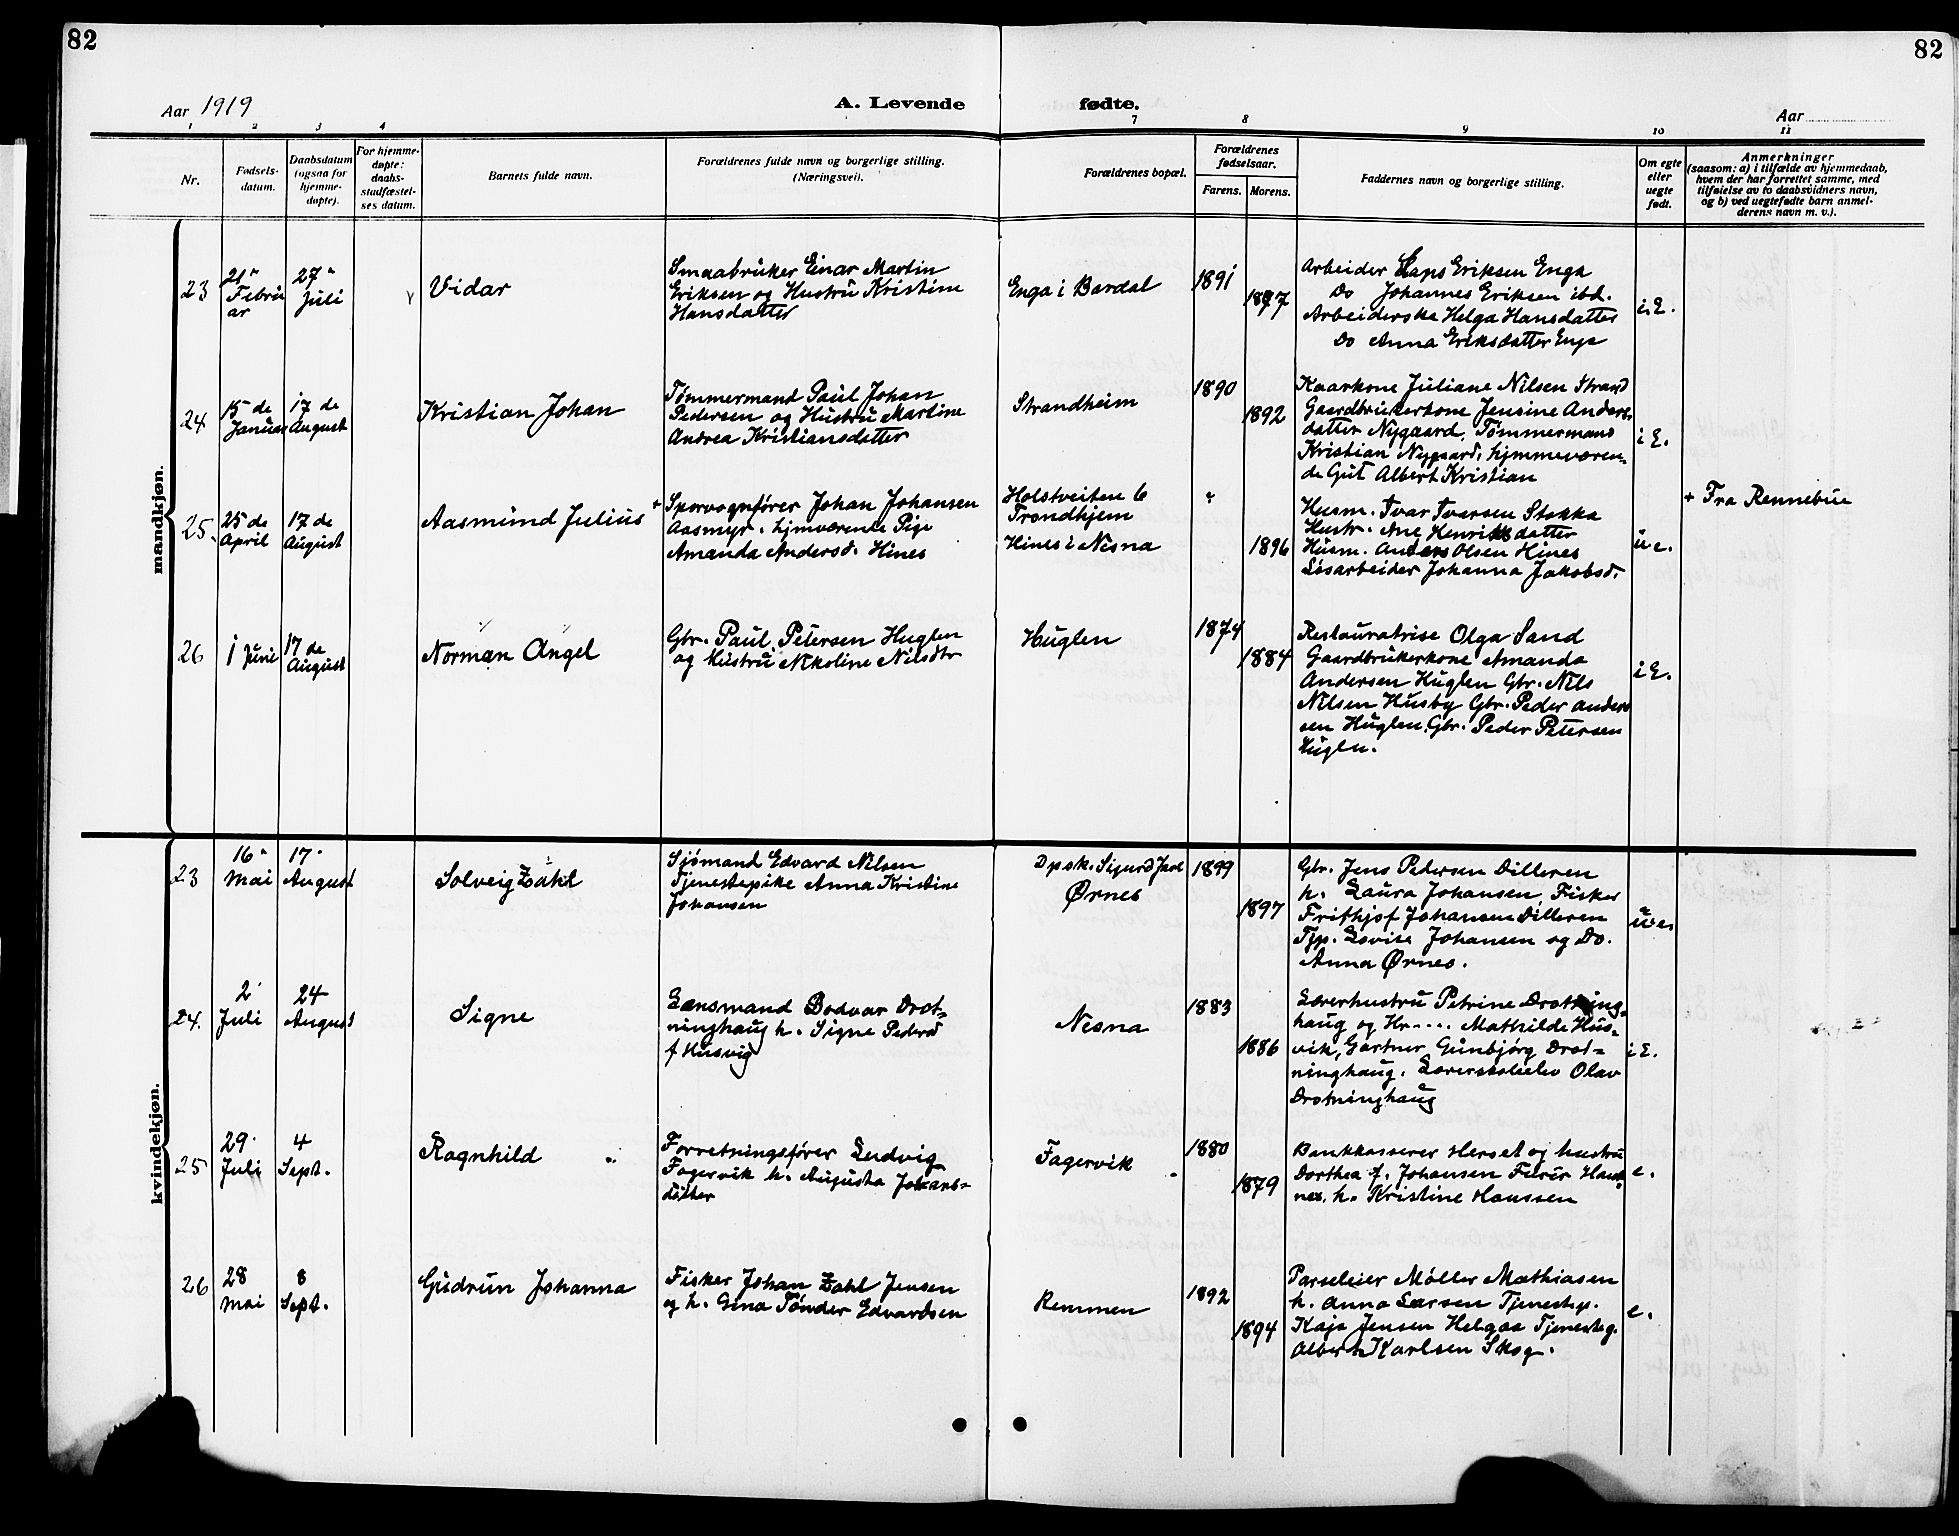 82
82
Aar 1919
A. Levende fødte.
Aar
1 2 3 4 7 8 9 10 11
Nr.
Fødsels-
datum.
Daabsdatum
(ogsaa for
hjemme-
døpte).
For hjemme-
døpte:
daabs-
stadfæstel-
ses datum.
Barnets fulde navn.
Forældrenes fulde navn og borgerlige stilling.
(Næringsvei).
Forældrenes bopæl.
Forældrenes
fødselsaar.
Farens. Morens.
Faddernes navn og borgerlige stilling.
Om egte
eller
uegte
født.
Anmerkninger
(saasom: a) i tilfælde av hjemmedaab,
hvem der har forrettet samme, med
tilføielse av to daabsvidners navn,
og b) ved uegtefødte barn anmel-
derens navn m. v.).
mandkjøn.
23
21"
Febru
ar
27"
Juli
Vidar
Smaabruker Einar Martin
Eriksen og Hustru Kristine
Hansdatter
Enga i Bardal
1891
1897
Arbeider Hans Eriksen Enga
Do Johannes Eriksen ibd.
Arbeiderske Helga Hansdatter
Do Anna Eriksdatter Enga
i E.
24
15 de
Januar
17 de
August
Kristian Johan
Tømmermand Paul Johan
Pedersen og Hustru Martine
Andrea Kristiansdatter
Strandheim
1890
1892
Kaarkone Juliane Nilsen Strand
Gaardbrukerkone Jensine Anders
datter Nygaard, Tømmermand
Kristian Nygaard, hjmmeværen-
de Gut Albert Kristian
i E.
25.
25 de
April
17 de
August
Aasmund Julius
+ Sporvognfører Johan Johansen
Aasmyr. hjmværende Pige
Amanda Andersd. Hines
Holstveiten 6
Trondhjem
Hines i Nesna
"
1896
Husm. Ivar Ivarsen Stokka
Hustr. Ane Henriksdatter
Husm. Anders Olsen Hines
Løsarbeider Johanna Jakobsd.
u e.
+ Fra Rennebue
26
1 Juni
17 de
August
Norman Angel
Gbr. Paul Petersen Huglen
og Hustru Nikoline Nilsdtr
Huglen
1874
1884
Restauratrise Olga Sand
Gaardbrukerkone Amanda
Andersen Huglen Gbr. Nils
Nilsen Husby Gbr. Peder Anders
sen Huglen, Gbr. Peder Petersen
Huglen.
i E.
kvindekjøn.
23
16"
Mai
17"
August
Solveig Zahl
Sjømand Edvard Nilsen
Tjenestepike Anna Kristine
Johansen
Dpsk. Sigurd Jarl
Ørnes
1899
1897
Gbr. Jens Pedersen Dilleren
h. Laura Johansen, Fisker
Frithjof Johansen Dilleren
Tjp. Lovise Johansen og Do.
Anna Ørnes.
u e.
24.
2'
Juli
24
August
Signe
Lensmand Bodvar Drot-
ninghaug h. Signe Pedersd
f Husvig
Nesna
1883
1886
Lærerhustru Petrine Drotning-
haug og Hr.... Mathilde Hus-
vik, Gartner Gunbjørg Drot-
ninghaug, Lærerskoleelev Olav
Drotninghaug
i E.
25
29
Juli
4
Sept.
Ragnhild
Forretningsfører Ludvig
Fagervik h. Augusta Johans-
datter
Fagervik
1880
1879
Bankkasserer Herset og hustru
Dorthea f. Johansen
h. Kristine Hanssen
e.
26
28
Mai
8
Sept.
Gudrun Johanna
Fisker Johan Zahl Jensen
og h. Gina Tønder Edvardsen
Remmen
1892
1894
Parseleier Møller Mathiasen
h. Anna Larsen Tjenestep.
Kaja Jensen Helgaa Tjenesteg.
Albert Karlsen Skog.
e.